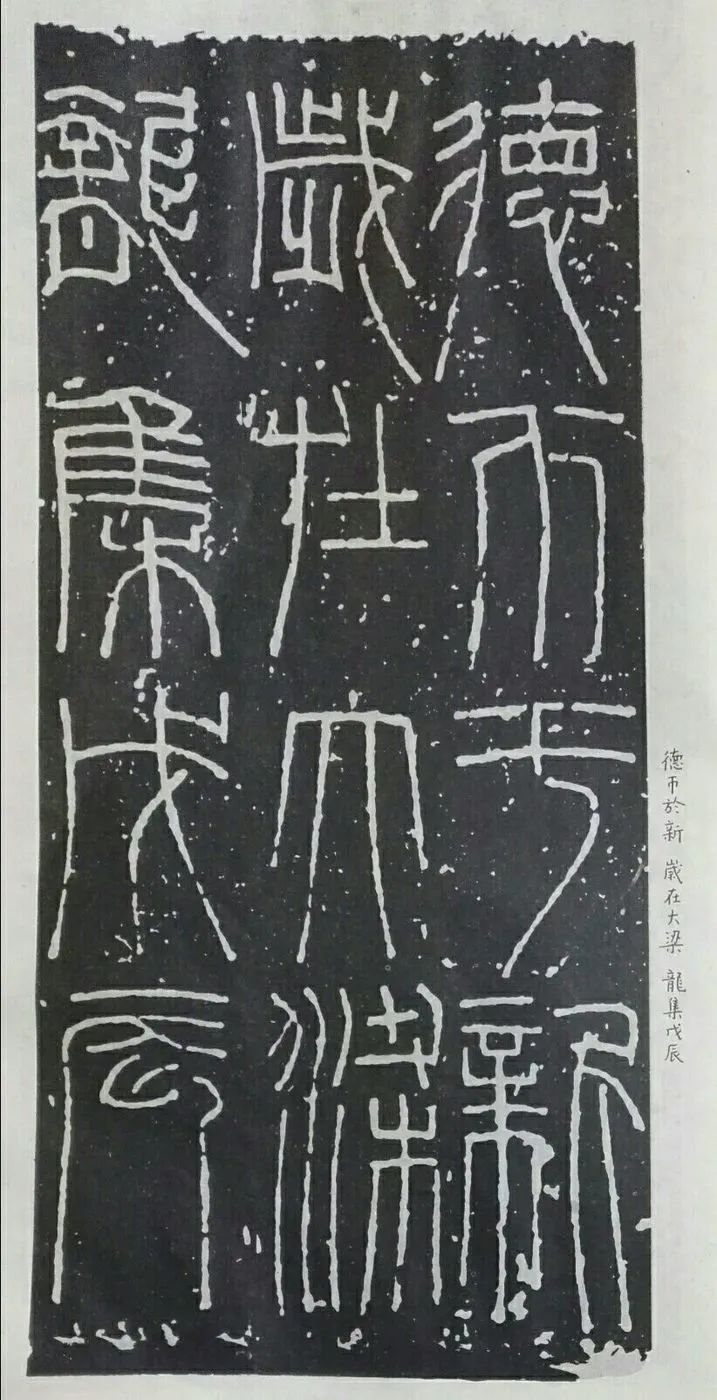 德帀于新
歲在大梁
龍集戊辰
德帀於新 歲在大梁 龍集戊辰